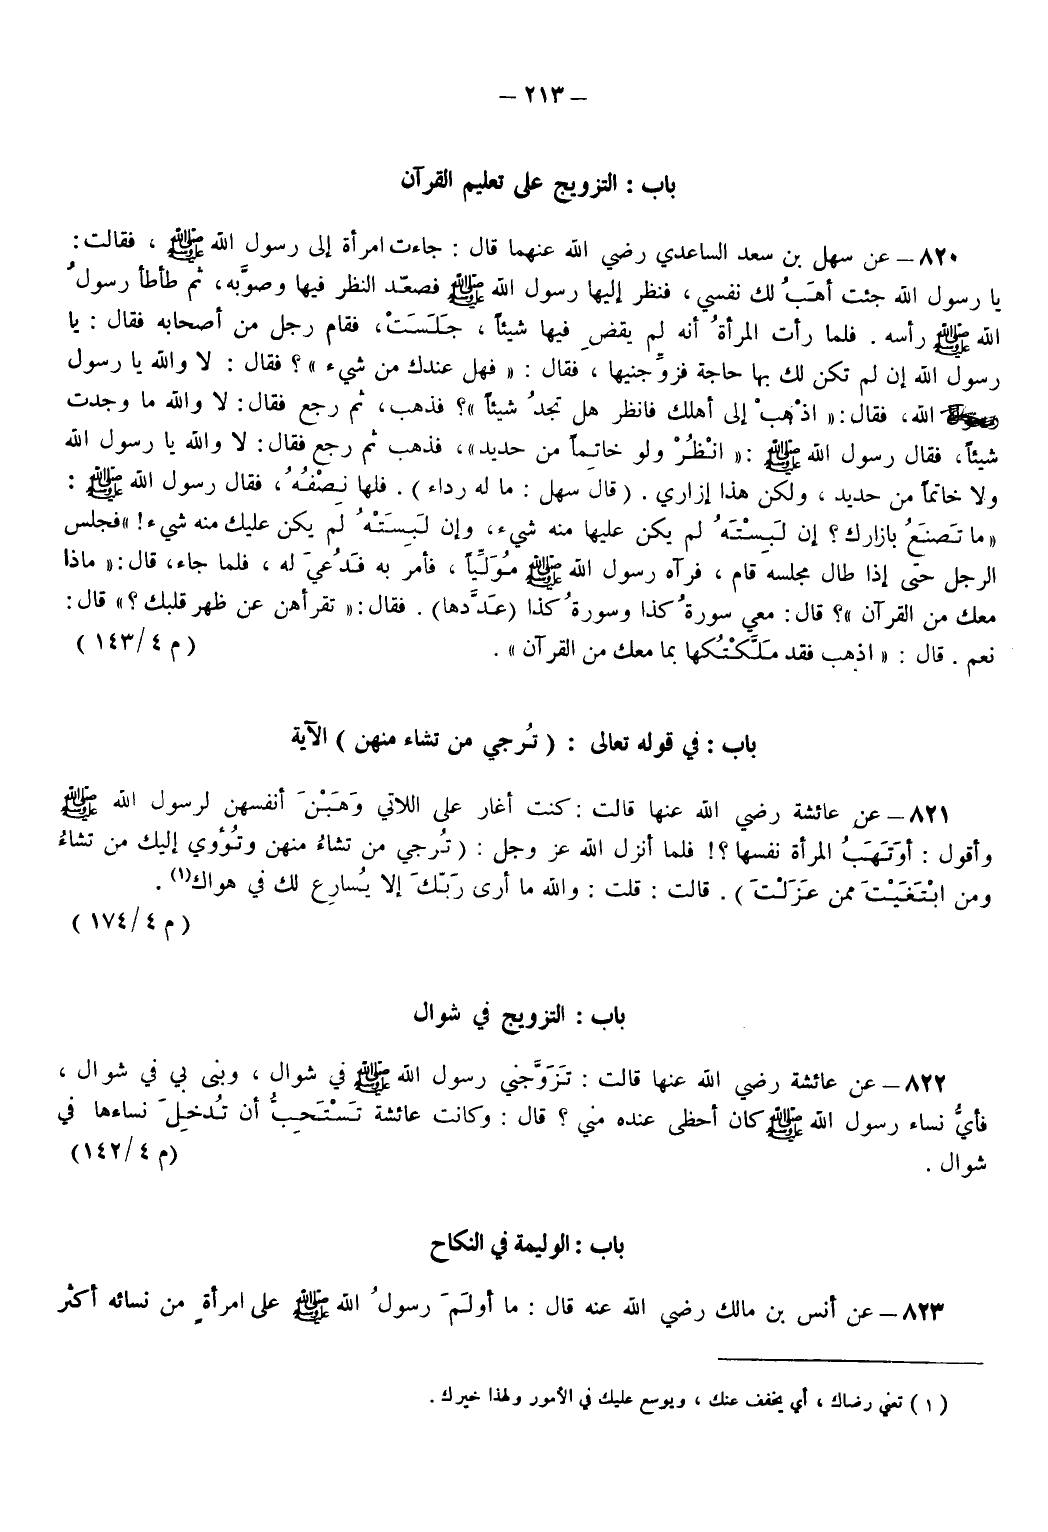 – ٢١٣ –
باب : التزويج على تعليم القرآن
٨٢٠ – عن سهل بن سعد الساعدي رضي الله عنهما قال : جاءت امرأة إلى رسول الله ﷺ ، فقالت :
يا رسول الله جئت أهَبُ لك نفسي ، فنظر إليها رسول الله ﷺ فصعّد النظر فيها وصوَّبه، ثم طأطأ رسولُ
الله ﷺ رأسه . فلما رأت المرأةُ أنه لم يقضِ فيها شيئاً ، جَلَسَتْ، فقام رجل من أصحابه فقال : يا
رسول الله إن لم تكن لك بها حاجة فزوِّجنيها ، فقال : « فهل عندك من شيء » ؟ فقال : لا والله يا رسول
الله، فقال :« اذْهبْ إلى أهلك فانظر هل تجدُ شيئاً »؟ فذهب، ثم رجع فقال: لا والله ما وجدت
شيئاً، فقال رسول الله ﷺ :« انْظُرْ ولو خاتِماً من حديد»، فذهب ثم رجع فقال: لا والله يا رسول الله
ولا خاتماً من حديد ، ولكن هذا إزاري . ( قال سهل : ما له رداء ) . فلها نِصْفُهُ ، فقال رسول الله ﷺ :
« ما تَصنَعُ بازارك ؟ إن لَبِسْتَهُ لم يكن عليها منه شيء، وإن لَبِسَتْهُ لم يكن عليك منه شيء! »فجلس
الرجل حتّى إذا طال مجلسه قام ، فرآه رسول الله ﷺ مُوَلِّياً ، فأمر به فَدُعيَ له ، فلما جاء، قال :« ماذا
معك من القرآن »؟ قال: معي سورةُ كذا وسورةُ كذا (عَدَّدها) . فقال :« تقرأهن عن ظهر قلبك ؟» قال:
نعم . قال : « اذهب فقد مَلَّكْتُكها بما معك من القرآن » . ( م ٤/١٤٣ )
باب : في قوله تعالى : ( تُرجي من تشاء منهن ) الآية
٨٢١ – عن عائشة رضي الله عنها قالت : كنت أغار على اللاتي وَهَبْنَ أنفسهن لرسول الله ﷺ
وأقول : أوَتَهَبُ المرأة نفسها ؟! فلما أنزل الله عز وجل : ( تُرجي من تشاءُ منهن وتُؤوي إليك من تشاءُ
ومن ابْتَغَيْتَ ممن عَزَلْتَ ) . قالت : قلت : والله ما أرى رَبّكَ إلا يُسارِع لك في هواك(١) .
( م ٤/١٧٤ )
باب : التزويج في شوال
٨٢٢ – عن عائشة رضي الله عنها قالت : تَزَوَّجني رسول الله ﷺ في شوال ، وبنى بي في شوال ،
فأيُّ نساء رسول الله ﷺ كان أحظى عنده مني ؟ قال : وكانت عائشة تَسْتَحِبُّ أن تُدخِلَ نساءها في
شوال . (م ٤/١٤٢)
باب : الوليمة في النكاح
٨٢٣ – عن أنس بن مالك رضي الله عنه قال : ما أولَمَ رسولُ الله ﷺ على امرأةٍ من نسائه أكثر
( ١ ) تعني رضاك ، أي يخفف عنك ، ويوسع عليك في الأمور ولهذا خيرك .